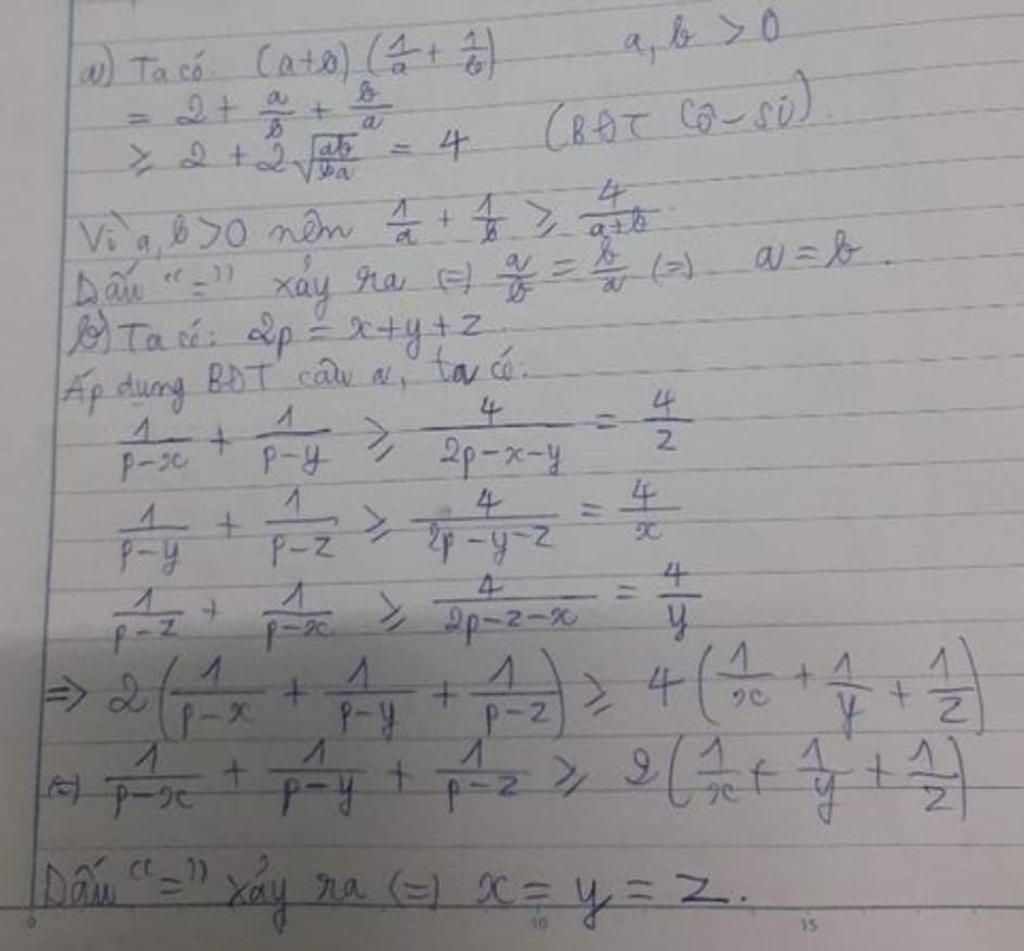 a) Ta có (a+b) (1/a + 1/b) a, b > 0
= 2 + a/b + b/a
≥ 2 + 2√(ab/ba) = 4 (BĐT Cô-Si).
Vì a, b > 0 nên 1/a + 1/b ≥ 4/(a+b).
Dấu "=" xảy ra (=) a/b = b/a (=) a = b.
b) Ta có: 2p = x+y+z.
Áp dụng BĐT câu a, ta có:
1/(p-x) + 1/(p-y) ≥ 4/(2p-x-y) = 4/z
1/(p-y) + 1/(p-z) ≥ 4/(2p-y-z) = 4/x
1/(p-z) + 1/(p-x) ≥ 4/(2p-z-x) = 4/y
=> 2(1/(p-x) + 1/(p-y) + 1/(p-z)) ≥ 4(1/x + 1/y + 1/z)
(=) 1/(p-x) + 1/(p-y) + 1/(p-z) ≥ 2(1/x + 1/y + 1/z)
Dấu "=" xảy ra (=) x = y = z.
0 10 15